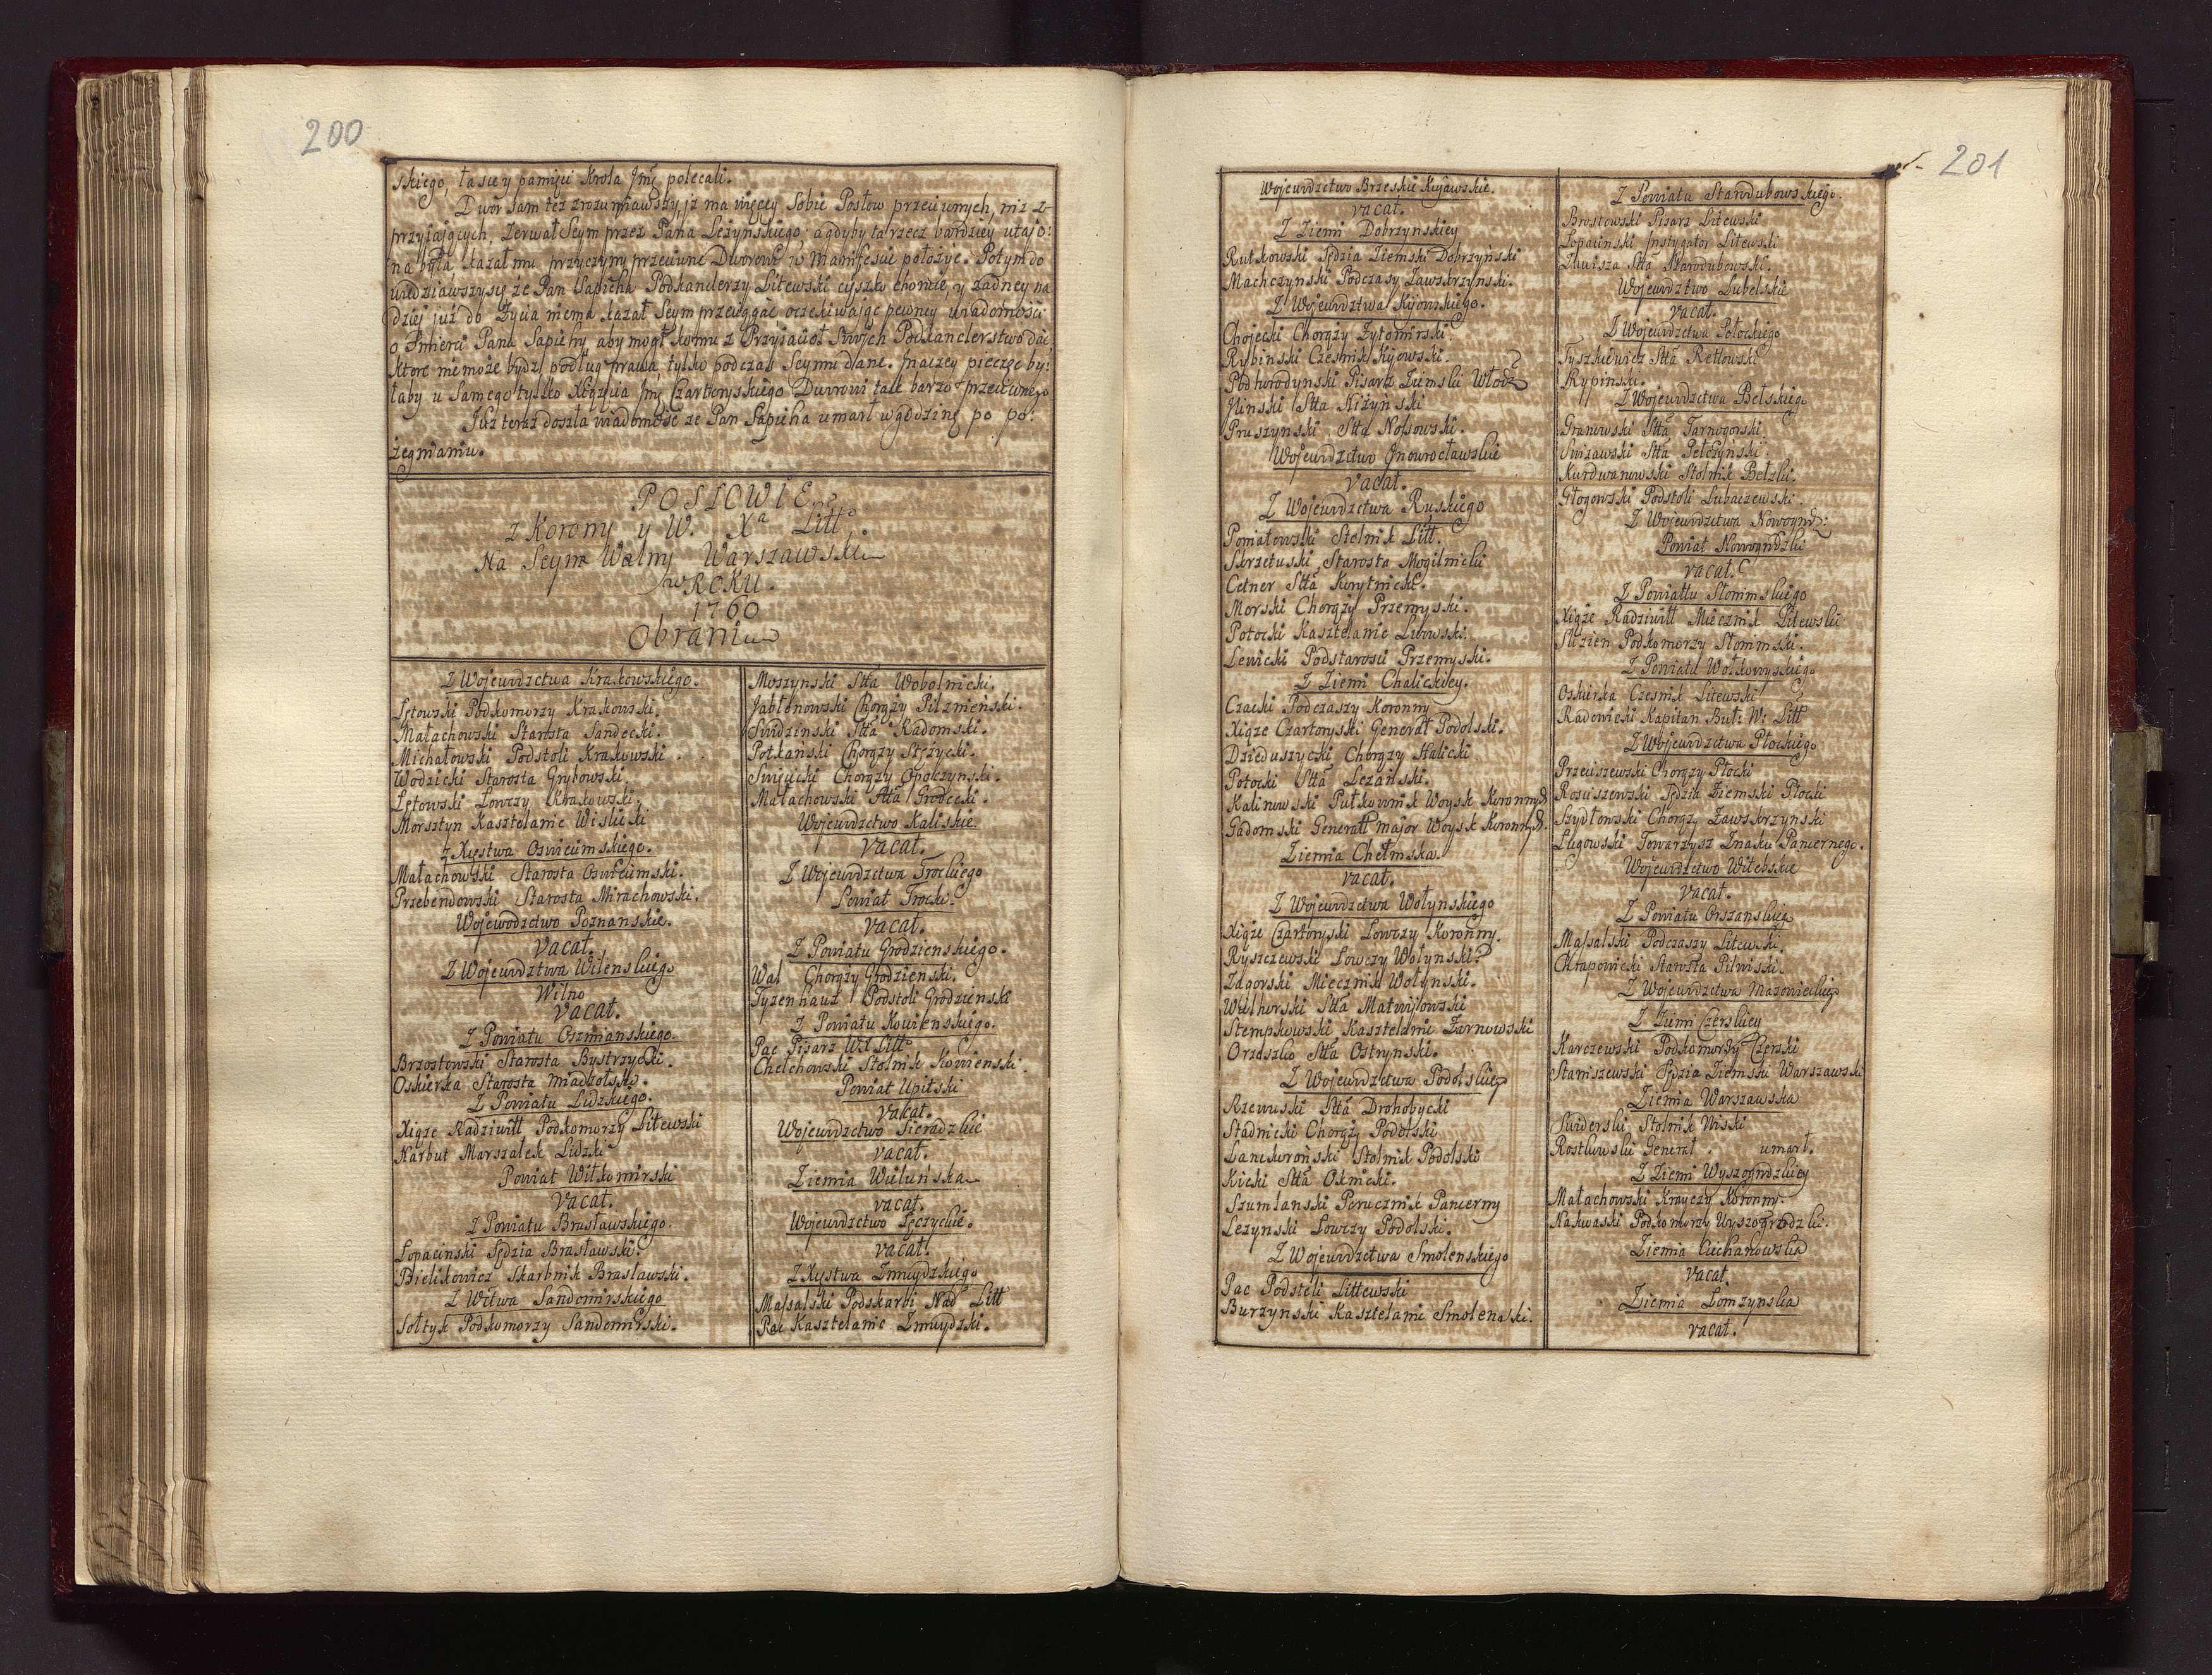 200
skiego, łasce y pamięci Krola Jmć polecali.
Dwór sam też zrozumiawszy, iż ma więcey Sobie Posłow przeciwnych, niż z-
przyiających, zerwał Seym przez Pana Leżyńskiego; a gdyby ta rzecz bardziey utajo:
na była kazał mu przyczyny przeciwne Dworowi w Manifeście położyć. Potym do
wiedziawszy się ze Pan Sapieha Podkanclerzy Litewski ciężko choruie, y żadney na
dziei już do życia niema kazał Seym przeciągać oczekiwając pewney wiadomości
o śmierci Pana Sapiehy aby mogł komu z Przyiacioł Swych Podkanclerstwo dać,
ktore nie może bydź podług prawa, tylko podczas Seymu dane. Jnaczey pieczęć by:
łaby u Samego tylko Xiążęcia Jmć Czartoryskiego Dworowi tak barzo przeciwnego
Już teraz doszła wiadomość ze Pan Sapieha umarł w godzinę po po:
żegnaniu.
POSŁOWIE
z Korony y W. Xa Litt
Na Seym Walny Warszawski
w ROKU.
1760
Obrani
Z Wojewodztwa Krakowskiego.
Łętowski Podkomorzy Krakowski.
Małachowski Starosta Sandecki.
Michałowski Podstoli Krakowski.
Wodzicki Starosta Grybowski.
Łętowski Łowczy Krakowski.
Morsztyn Kasztelanic Wislicki
z Xięstwa Oswiecimskiego.
Małachowski Starosta Oswiecimski.
Przebendowski Starosta Mirachowski.
Wojewodztwo Poznanskie.
vacat.
Z Wojewodztwa Wilenskiego
Wilno
vacat.
Z Powiatu Oszmianskiego.
Brzostowski Starosta Bystrzycki.
Oskierka Starosta Miadzolski.
Z Powiatu Lidzkiego.
Xiąże Radziwiłł Podkomorzy Litewski
Narbut Marszałek Lidzki
Powiat Wiłkomirski
vacat.
Z Powiatu Brasławskiego.
Łopacinski Sędzia Brasławski.
Bielikowicz Skarbnik Brasławski.
Z Wctwa Sandomirskiego
Sołtyk Podkomorzy Sandomirski.
Moszynski Stta Wobolnicki.
Jabłonowski Chorąży Pilzmenski.
Swidzinski Stta Radomski.
Potkański Chorąży Stężycki.
Swięcicki Chorąży Opoczynski.
Małachowski Stta Grodecki.
Wojewodztwo Kaliskie
vacat.
Z Wojewodztwa Trockiego
Powiat Trocki.
vacat.
Z Powiatu Grodzienskiego.
Wal Chorąży Grodzienski.
Tyzenhauz Podstoli Grodzienski
Z Powiatu Kowienskiego.
Pac Pisarz Wł Litt
Chelchowski Stolnik Kowienski.
Powiat Upitski
vacat.
Wojewodztwo Sieradzkie
vacat.
Ziemia Wieluńska
vacat.
Wojewodztwo Łęczyckie.
vacat.
Z Xięstwa Zmuydzkiego
Massalski Podskarbi Nad Litt
Pac Kasztelanic Zmuydzki.
201
Wojewodztwo Brzeskie Kujawskie.
vacat.
Z Ziemi Dobrzynskiey
Rutkowski Sędzia Ziemski Dobrzyński
Machczynski Podczaszy Zawskrzynski.
Z Wojewodztwa Kijowskiego.
Chojecki Chorąży Zytomirski
Rybinski Czesnik Kijowski.
Podhorodynski Pisarz Ziemski Włodz
Jlinski Stta Niżyński
Pruszynski Stta Nossowski.
Wojewodztwo Jnowrocławskie
vacat.
Z Wojewodztwa Ruskiego
Poniatowski Stolnik Litt.
Skrzetuski Starosta Mogilnicki
Cetner Stta Korytnicki.
Morski Chorąży Przemyski.
Potocki Kasztelanic Lwowski.
Lewicki Podstarosci Przemyski.
Z Ziemi Chalickiey.
Czacki Podczaszy Koronny
Xiąże Czartoryski Generał Podolski.
Dzieduszycki Chorąży Halicki
Potocki Stta Leżański.
Kalinowski Pułkownik Woysk Koronnych
Gadomski Generał major Woysk Koronnych.
Ziemia Chełmska.
vacat.
Z Wojewodztwa Wołynskiego
Xiąże Czartoryski Łowczy Koronny.
Ryszczewski Łowczy Wołynski.
Zagorski Miecznik Wołynski.
Wielhorski Stta Matwijowski
Stempkowski Kasztelanic Zarnowski
Orzeszko Stta Ostrynski.
Z Wojewodztwa Podolskiego
Rzewuski Stta Drohobycki
Stadnicki Chorąży Podolski
Lanckoroński Stolnik Podolski
Kicki Stta Oknicki.
Szumlanski Porucznik Pancerny
Leżynski Łowczy Podolski.
Z Wojewodztwa Smolenskiego
Pac Podstoli Littewski
Burzynski Kasztelanic Smolenski.
Z Powiatu Starodubowskiego.
Brostowski Pisarz Litewski
Łopaciński Jnstygator Litewski
Zawisza Stta Starodubowski.
Wojewodztwo Lubelskie
vacat.
Z Wojewodztwa Połockiego
Tyszkiewicz Stta Retowski
Rypinski.
Z Wojewodztwa Bełskiego
Granowski Stta Tarnogorski
Swizawski Stta Pełczyński
Kurdwanowski Stolnik Bełzki.
Głogowski Podstoli Lubaczewski.
Z Wojewodztwa Nowogrodz:
Powiat Nowogrodzki
vacat.
Z Powiattu Słonimskiego
Xiąże Radziwiłł Miecznik Litewski
Słizien Podkomorzy Słonimski.
Z Powiatu Wołkowyskiego
Oskierka Czesnik Litewski
Radowicki Kapitan Buł: W: Litt
Z Wojewodztwa Płockiego
Przeciszewski Chorąży Płocki
Rosciszewski Sędzia Ziemski Płocki
Szydłowski Chorąży Zawskrzynski
Ługowski Towarzysz Znaku Pancernego.
Wojewodztwo Witebskie
vacat.
Z Powiatu Orszanskiego
Massalski Podczaszy Litewski.
Chrapowicki Starosta Pilwiski.
Z Wojewodztwa Mazowieckiego
Z Ziemi Czerskiey
Karczewski Podkomorzy Czerski
Staniszewski Sędzia Ziemski Warszawski
Ziemia Warszawska
Swiderski Stolnik Niski
Rostkowski Generał. umarł.
Z Ziemi Wyszogrodzkiey
Małachowski Krayczy Koronny.
Nakwaski Podkomorzy Wyszogrodzki.
Ziemia Ciechanowska
vacat
Ziemia Łomzynska
vacat.